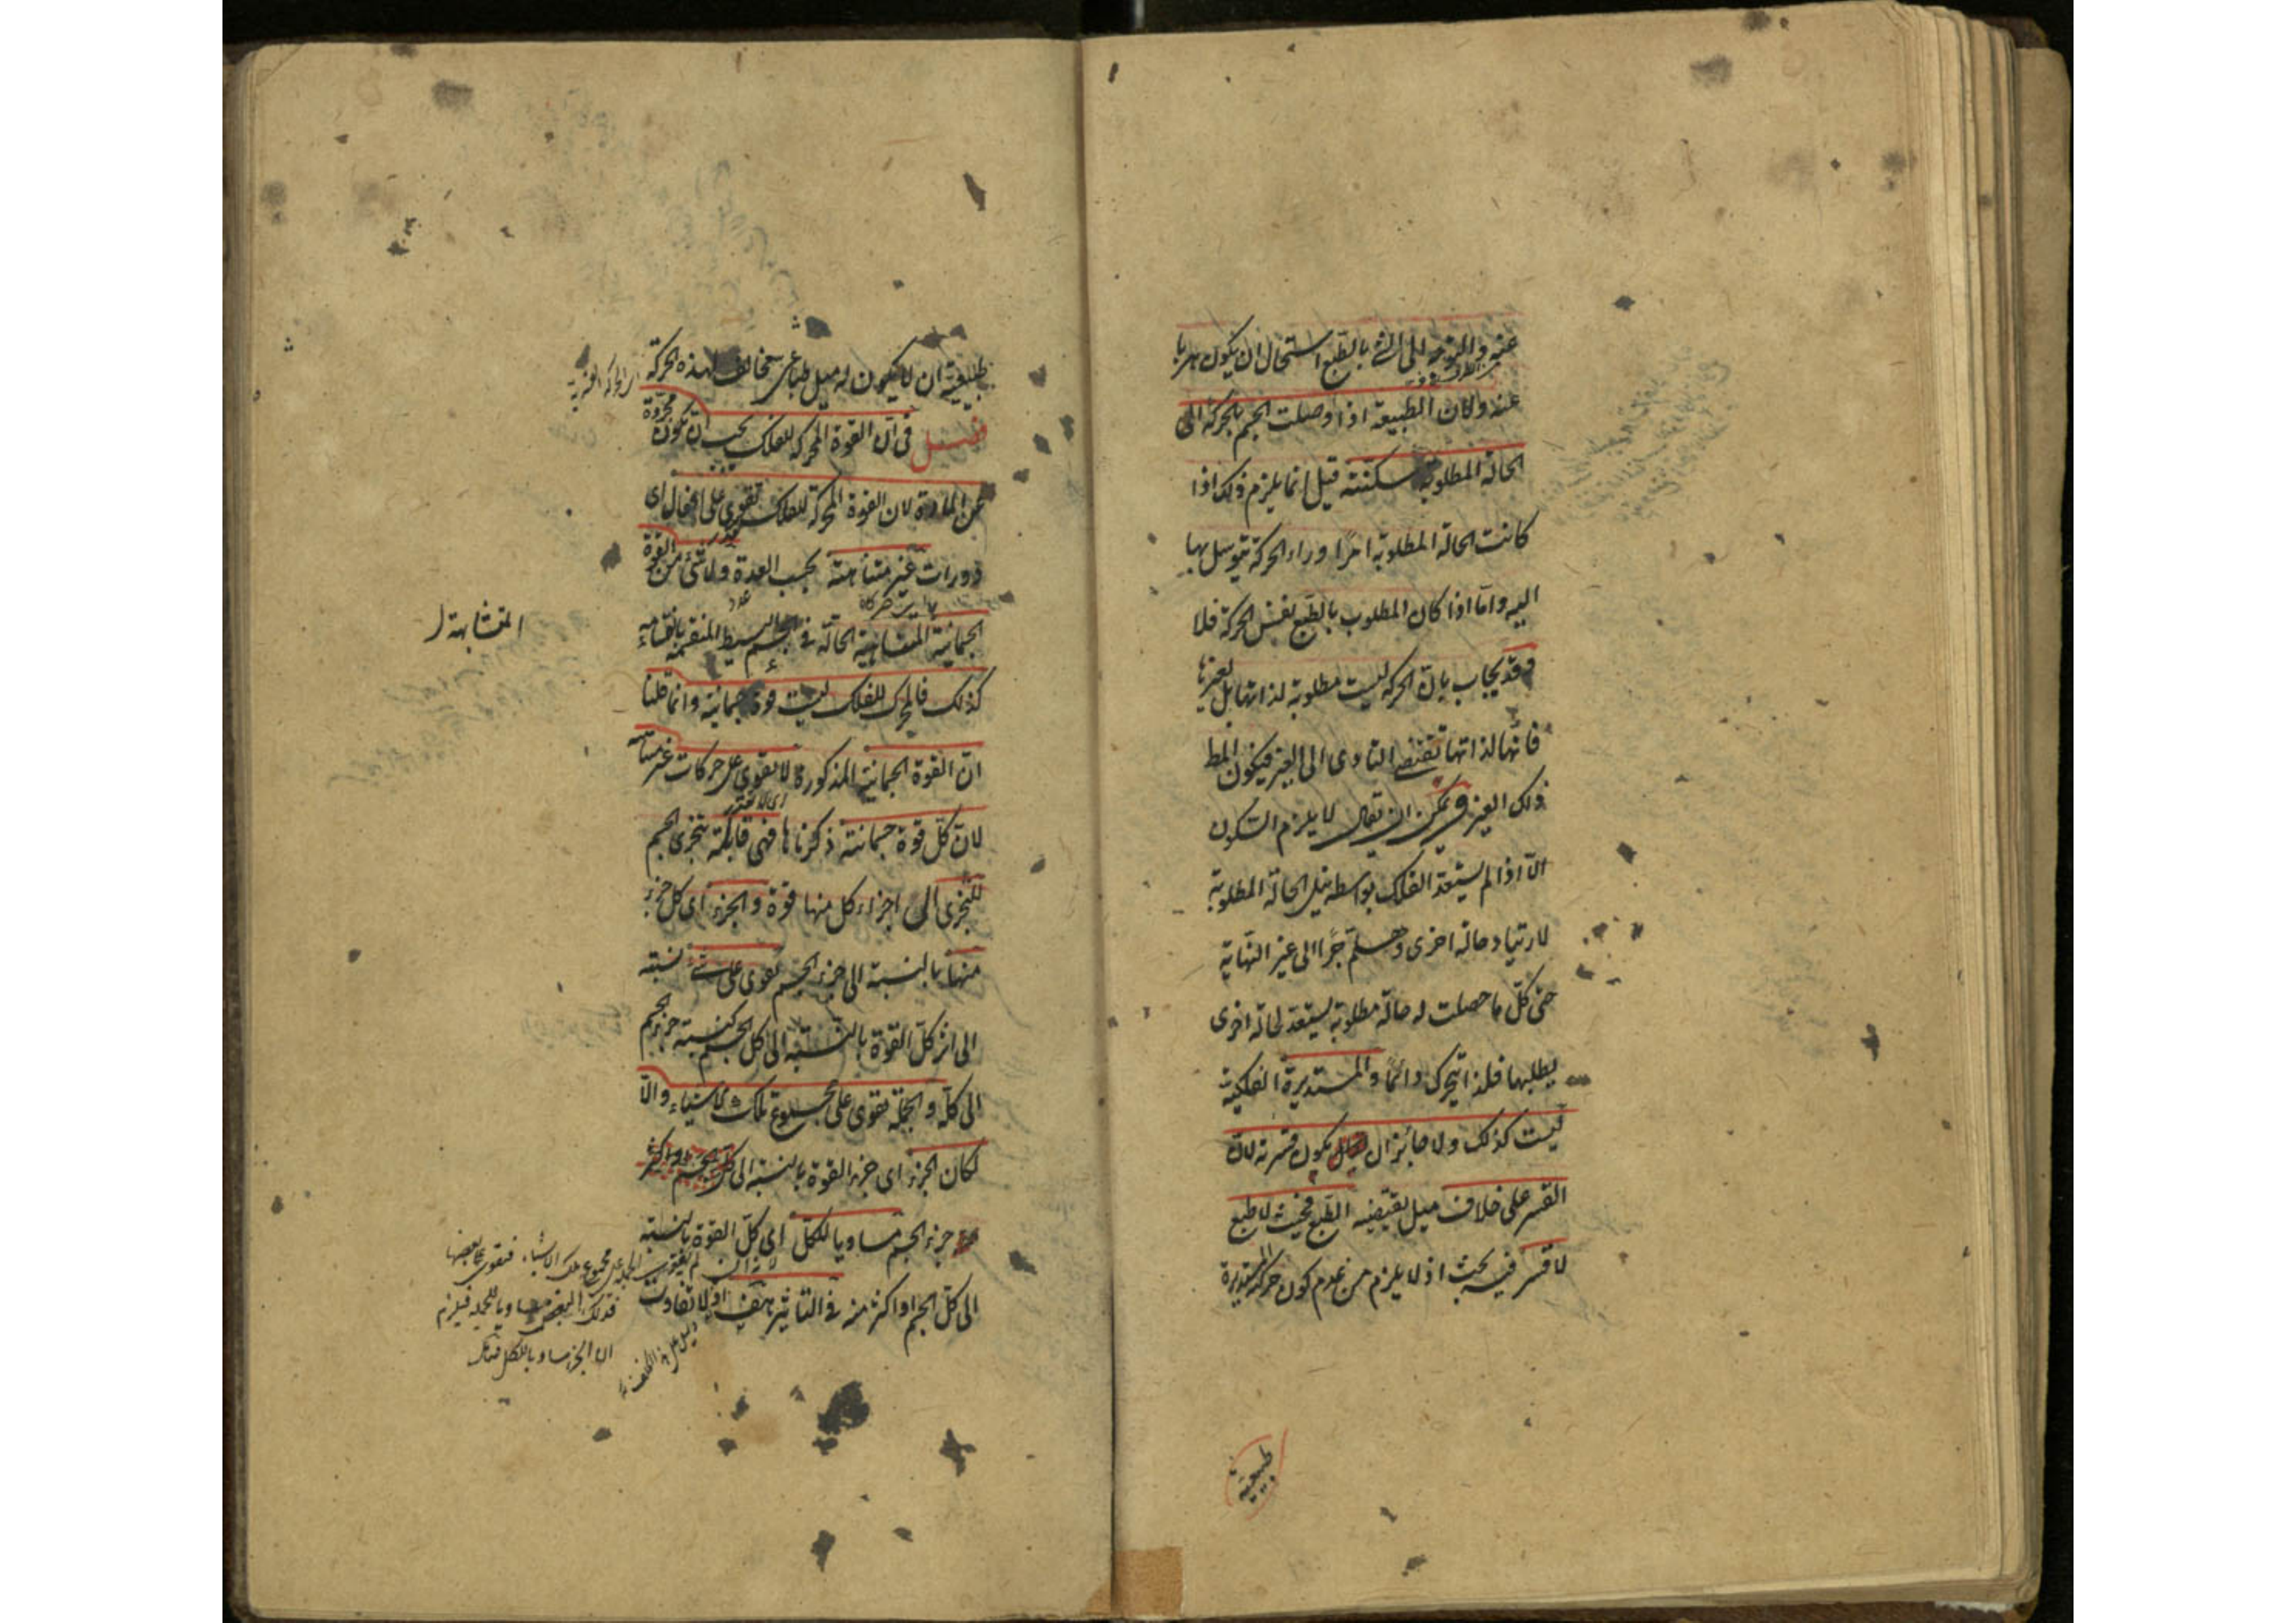 عنه والهرب الى الشئ بالطبع استحال ان يكون هربا
عنه ولان الطبيعة اذا اوصلت الجسم بالحركة الى
الحالة المطلوبة سكنته قيل انما يلزم ذلك اذا
كانت الحالة المطلوبة امرا وراء الحركة يتوسل بها
اليه واما اذا كان المطلوب بالطبع نفس الحركة فلا
وقد يجاب بان الحركة ليست مطلوبة لذاتها بل لغيرها
فانها لذاتها تقتضى التادى الى الغير فيكون المط
ذلك الغير ويمكن ان يقال لا يلزم السكون
الا اذا لم يستعد الفلك بواسطة نيل الحالة المطلوبة
لارتياد حالة اخرى وهلم جرا الى غير النهاية
حتى كل ما حصلت له حالة مطلوبة يستعد لحالة اخرى
يطلبها فلذا يتحرك دائما والمستديرة الفلكية
ليست كذلك ولا جائز ان يكون قسرية لان
القسر على خلاف ميل يقتضيه الطبع فحيث لا طبع
لا قسر فيه بحث اذ لا يلزم من عدم كون حركته المستديرة
طبيعية
طبيعية ان لا يكون له ميل طباعى مخالف لهذه الحركة
فصل فى ان القوة المحركة للفلك يجب ان تكون مجردة
عن المادة لان القوة المحركة للفلك تقوى على افعال اى
دورات غير متناهية بحسب العدة ولا شئ من القوة
الجسمانية المتشابهة الحالة فى الجسم البسيط المنقسمة بانقسامه
المتشابهة
كذلك فالمحرك للفلك ليست قوة جسمانية وانما قلنا
ان القوة الجسمانية المذكورة لا تقوى على حركات غير متناهية
لان كل قوة جسمانية ذكرناها فهى قابلة بتجزى الجسم
للتجزى الى اجزاء كل منها قوة والجزء اى كل جزء
منها بالنسبة الى جزء الجسم تقوى على شئ نسبته
الى اثر كل القوة بالنسبة الى كل الجسم كنسبة جزء الجسم
الى كله والجملة تقوى على مجموع تلك الاشياء والا
لكان الجزء اى جزء القوة بالنسبة الى
جزء الجسم مساويا للكل اى كل القوة بالنسبة
الى كل الجسم او اكثر منه فى التاثير هف اذ لا تفاوت
لانه ان لم تقو الجملة على مجموع تلك الاشياء فتقوى على بعضها
فذلك البعض مساويا للجملة فيلزم
ان الجزء مساويا للكل